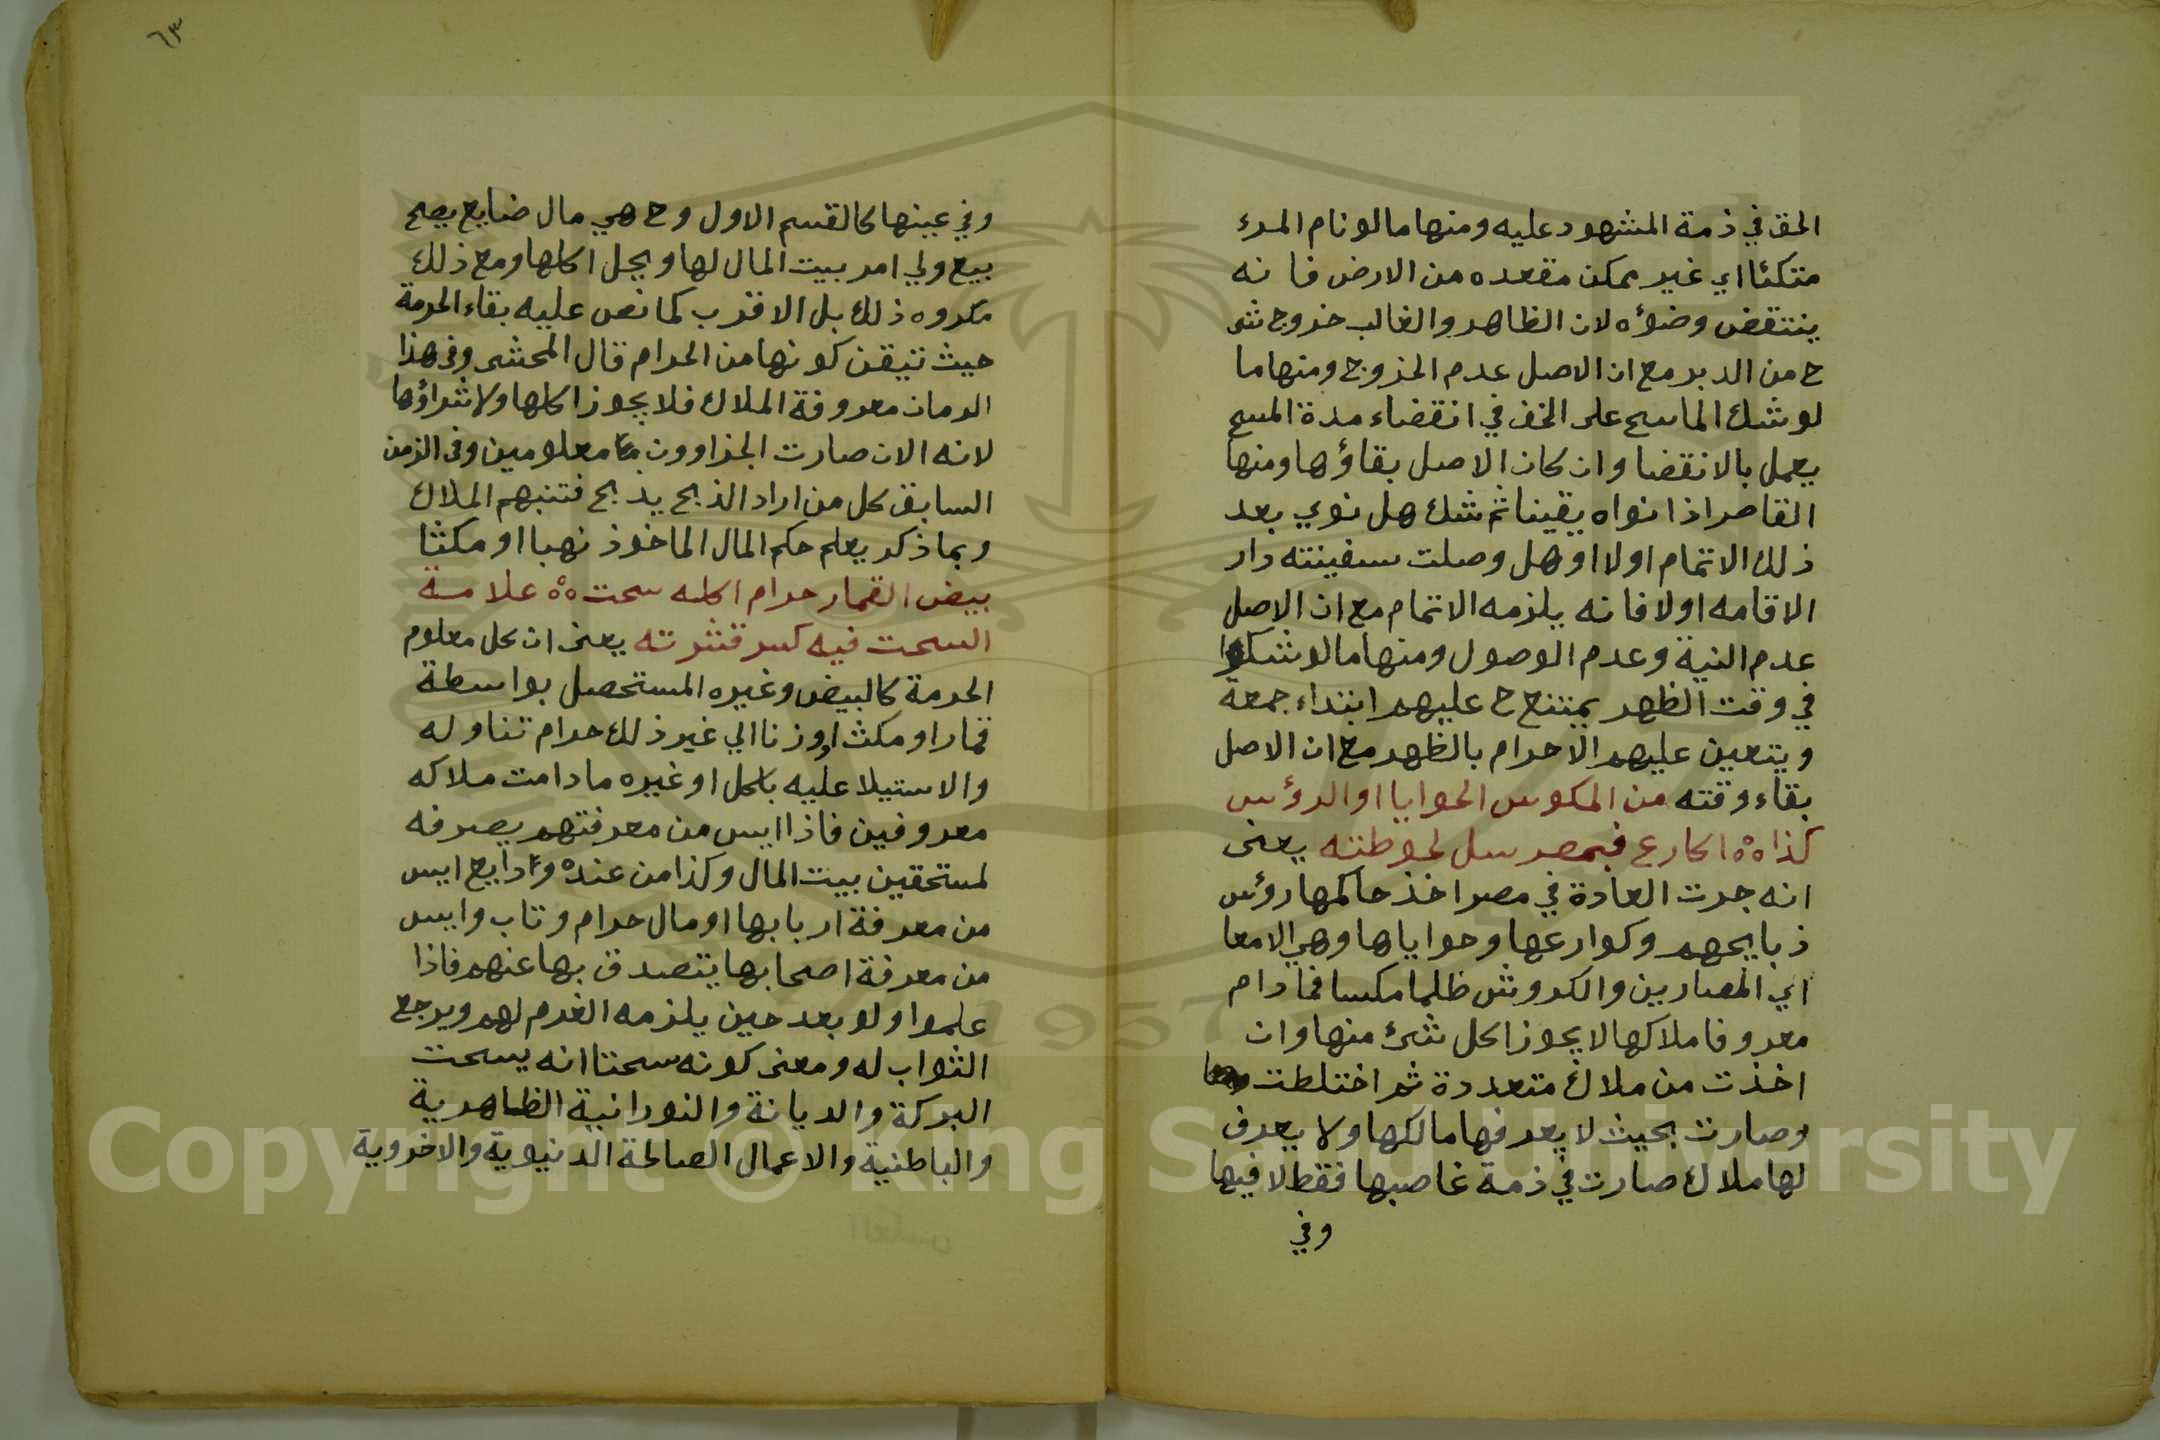 الحق في ذمة المشهود عليه ومنها ما لو نام المرء
متكئا اي غير ممكن مقعده من الارض فانه
ينتقض وضؤه لان الظاهر والغالب خروج شى
ح من الدبر مع ان الاصل عدم الخروج ومنها ما
لو شك الماسح على الخف في انقضاء مدة المسح
يعمل بالانقضا وان كان الاصل بقاؤها ومنها
القاصر اذا نواه يقينا ثم شك هل نوي بعد
ذلك الاتمام اولا او هل وصلت سفينته دار
الاقامه اولا فانه يلزمه الاتمام مع ان الاصل
عدم النية وعدم الوصول ومنها ما لو شكوا
في وقت الظهر يمتنع ح عليهم ابتداء جمعة
ويتعين عليهم الاحرام بالظهر مع ان الاصل
بقاء وقته من المكوس الحوايا او الرؤس
كذا ٥ ٥ اكارع فبمصر سل لحوطته يعنى
انه جرت العادة في مصر اخذ حاكمها رؤس
ذبايحهم وكوارعها وحواياها وهي الامعا
اي المصارين والكروش ظلما مكسا فما دام
معروفا ملاكها لا يجوز اكل شئ منها وان
اخذت من ملاك متعددة ثم اختلطت
وصارت بحيث لا يعرفها مالكها ولا يعرف
لها ملاك صارت في ذمة غاصبها فقط لا فيها
وفي
٦٣
وفي عينها كالقسم الاول وح هي مال ضايع يصح
بيع ولي امر بيت المال لها ويحل اكلها ومع ذلك
مكروه ذلك بل الاقرب كما نص عليه بقاء الحرمة
حيث تيقن كونها من الحرام قال المحشى وفى هذا
الزمان معروفة الملاك فلا يجوز اكلها ولا شراؤها
لانه الان صارت الجزاوون معلومين وفى الزمن
السابق كل من اراد الذبح يذبح فتنبهم الملاك
وبما ذكر يعلم حكم المال الماخوذ نهبا او مكثا
بيض القمار حرام اكله سحت ٥ ٥ علامة
السحت فيه كسر قشرته يعنى ان كل معلوم
الحرمة كالبيض وغيره المستحصل بواسطة
قمار او مكث او زنا الي غير ذلك حرام تناوله
والاستيلا عليه باكل او غيره ما دامت ملاكه
معروفين فاذا ايس من معرفتهم يصرفه
لمستحقين بيت المال وكذا من عنده ودايع ايس
من معرفة اربابها او مال حرام وتاب وايس
من معرفة اصحابها يتصدق بها عنهم فاذا
علموا ولو بعد حين يلزمه الغرم لهم ويرجع
الثواب له ومعنى كونه سحتا انه يسحت
البركة والديانة والنورانية الظاهرية
والباطنية والاعمال الصالحة الدنيوية والاخروية
1957
Copyright © King Saud University